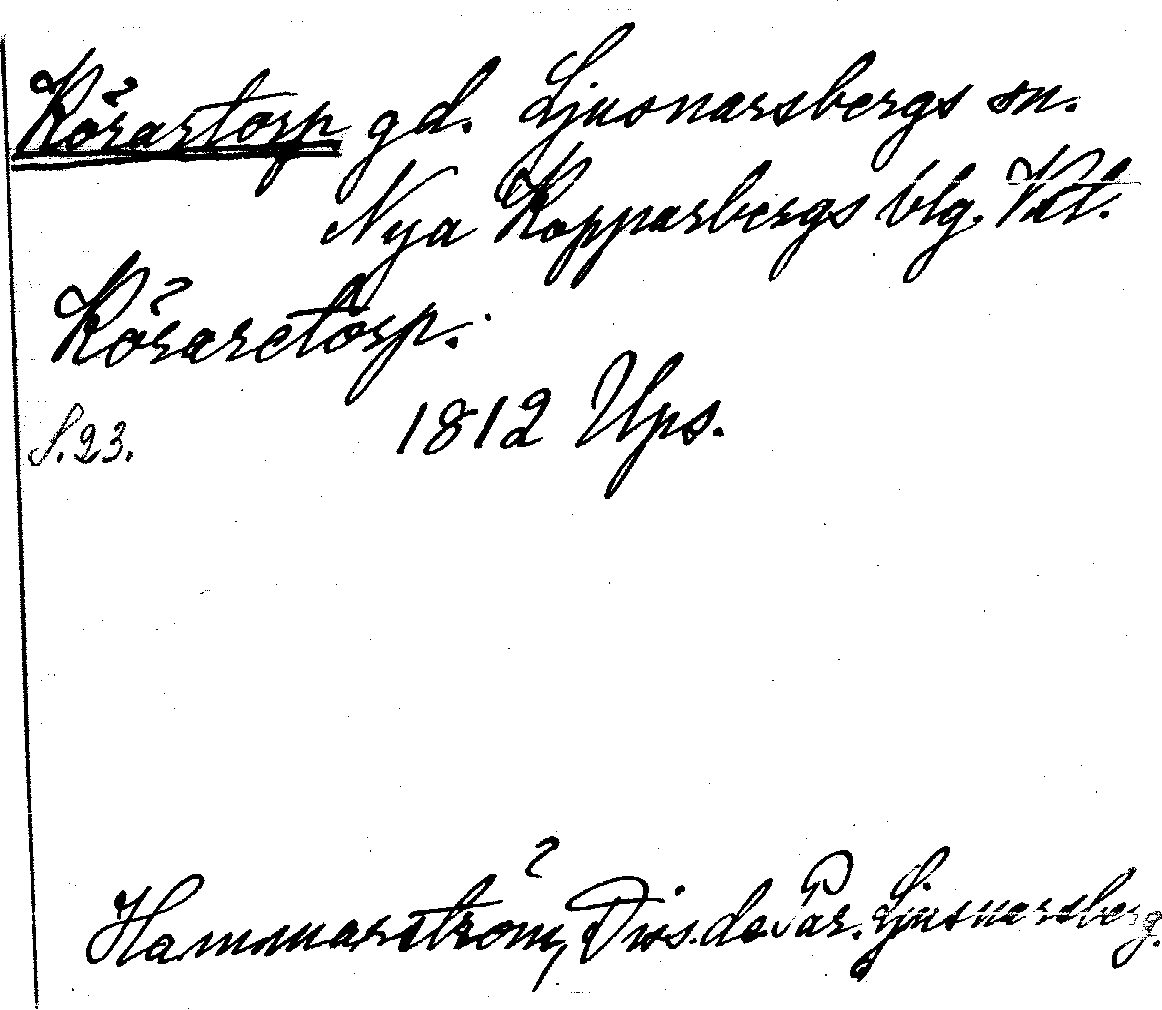 Körartorp gd. Ljusnarsbergs sn.
Nya Kopparbergs blg. Vstl.
Köraretorp.
S. 23. 1812 Ups.
Hammarström, Diss. de Par. Ljusnarsberg.